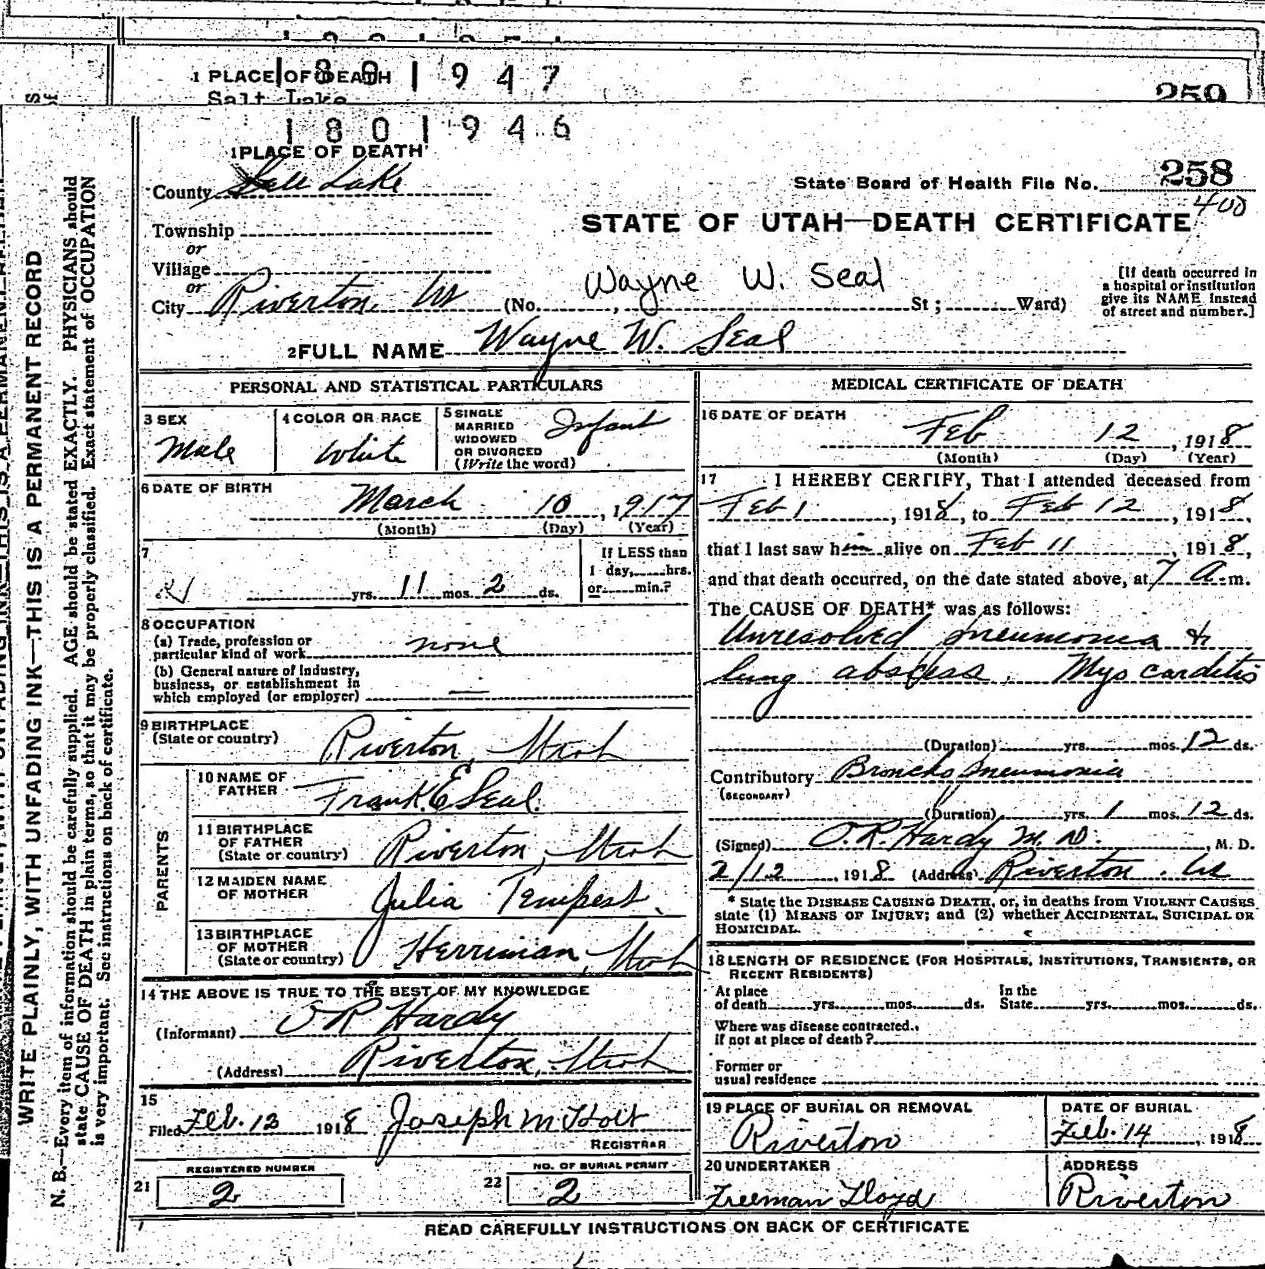 1 PLACE OF DEATH
1801947
Salt Lake
259
1801946
1 PLACE OF DEATH
County Salt Lake
State Board of Health File No. 258
400
STATE OF UTAH—DEATH CERTIFICATE
Township
or
Village
or
City Riverton Ut (No. , St ; Ward)
Wayne W. Seal
[If death occurred in
a hospital or institution
give its NAME instead
of street and number.]
2 FULL NAME Wayne W. Seal
PERSONAL AND STATISTICAL PARTICULARS
3 SEX
Male
4 COLOR OR RACE
White
5 SINGLE
MARRIED
WIDOWED
OR DIVORCED
(Write the word)
Infant
6 DATE OF BIRTH
March 10, 1917
(Month) (Day) (Year)
7
yrs. 11 mos. 2 ds.
If LESS than
1 day, hrs.
or min.?
8 OCCUPATION
(a) Trade, profession or
particular kind of work none
(b) General nature of industry,
business, or establishment in
which employed (or employer) —
9 BIRTHPLACE
(State or country) Riverton, Utah
PARENTS
10 NAME OF
FATHER Frank E Seal.
11 BIRTHPLACE
OF FATHER
(State or country) Riverton, Utah
12 MAIDEN NAME
OF MOTHER Julia Tempest.
13 BIRTHPLACE
OF MOTHER
(State or country) Herriman, Utah
14 THE ABOVE IS TRUE TO THE BEST OF MY KNOWLEDGE
(Informant) O R Hardy
(Address) Riverton, Utah
15
Filed Feb. 12 1918 Joseph M Holt
REGISTRAR
REGISTERED NUMBER
21 2
NO. OF BURIAL PERMIT
22 2
MEDICAL CERTIFICATE OF DEATH
16 DATE OF DEATH
Feb 12, 1918
(Month) (Day) (Year)
17 I HEREBY CERTIFY, That I attended deceased from
Feb 1, 1918, to Feb 12, 1918,
that I last saw him alive on Feb 11, 1918,
and that death occurred, on the date stated above, at 7 A. m.
The CAUSE OF DEATH* was as follows:
Unresolved pneumonia &
lung abscess. Myocarditis
(Duration) yrs. mos. 12 ds.
Contributory Broncho pneumonia
(SECONDARY)
(Duration) yrs. 1 mos. 12 ds.
(Signed) O.R. Hardy M.D., M. D.
2/12, 1918 (Address) Riverton. Ut
* State the DISEASE CAUSING DEATH, or, in deaths from VIOLENT CAUSES,
state (1) MEANS OF INJURY; and (2) whether ACCIDENTAL, SUICIDAL OR
HOMICIDAL.
18 LENGTH OF RESIDENCE (FOR HOSPITALS, INSTITUTIONS, TRANSIENTS, OR
RECENT RESIDENTS)
At place
of death yrs. mos. ds.
In the
State yrs. mos. ds.
Where was disease contracted,
if not at place of death?
Former or
usual residence
19 PLACE OF BURIAL OR REMOVAL
Riverton
DATE OF BURIAL
Feb. 14, 1918
20 UNDERTAKER
Freeman Lloyd
ADDRESS
Riverton
READ CAREFULLY INSTRUCTIONS ON BACK OF CERTIFICATE
WRITE PLAINLY, WITH UNFADING INK—THIS IS A PERMANENT RECORD
N. B.—Every item of information should be carefully supplied. AGE should be stated EXACTLY. PHYSICIANS should
state CAUSE OF DEATH in plain terms, so that it may be properly classified. Exact statement of OCCUPATION
is very important. See instructions on back of certificate.